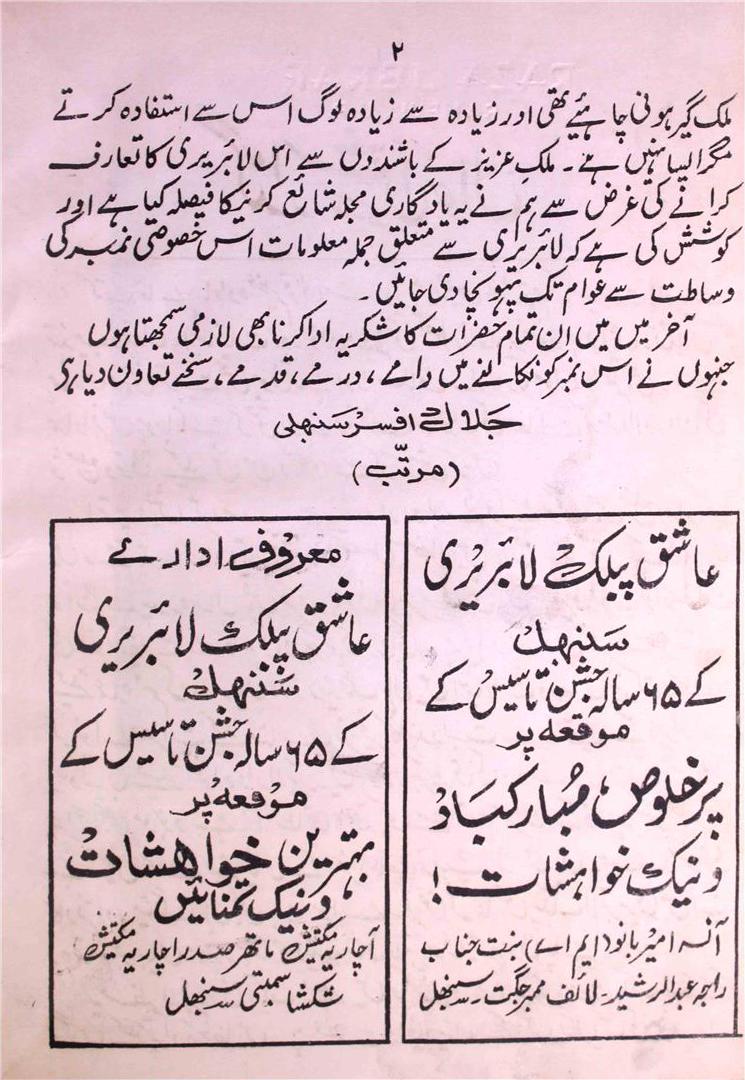 ۲
ملک گیر ہونی چاہئیے تھی اور زیادہ سے زیادہ لوگ اس سے استفادہ کرتے
مگر ایسا نہیں ہے۔ ملک عزیز کے باشندوں سے اس لائبریری کا تعارف
کرانے کی غرض سے ہم نے یہ یادگاری مجلہ شائع کرنیکا فیصلہ کیا ہے اور
کوشش کی ہے کہ لائبریری سے متعلق جملہ معلومات اس خصوصی نمبر کی
وساطت سے عوام تک پہونچا دی جائیں۔
آخر میں میں ان تمام حضرات کا شکریہ ادا کرنا بھی لازمی سمجھتا ہوں
جنہوں نے اس نمبر کو نکالنے میں دامے، درمے، قدمے، سخنے تعاون دیا ہے
جلال افسر سنبھلی
(مرتّب)
عاشق پبلک لائبریری
سنبھل
کے ۶۵ سالہ جشن تاسیس کے
موقعہ پر
پرخلوص مُبارکباد
و نیک خواہشات!
آنسہ امیر بانو (ایم اے) بنت جناب
راجہ عبدالرشید۔ لائف ممبر جگت۔ سنبھل
معروف ادارے
عاشق پبلک لائبریری
سنبھل
کے ۶۵ سالہ جشن تاسیس کے
موقعہ پر
بہترین خواہشات
و نیک تمنائیں
آچاریہ مکتیش ناتھر صدر اچاریہ مکتیش
شکشا سمیتی سنبھل